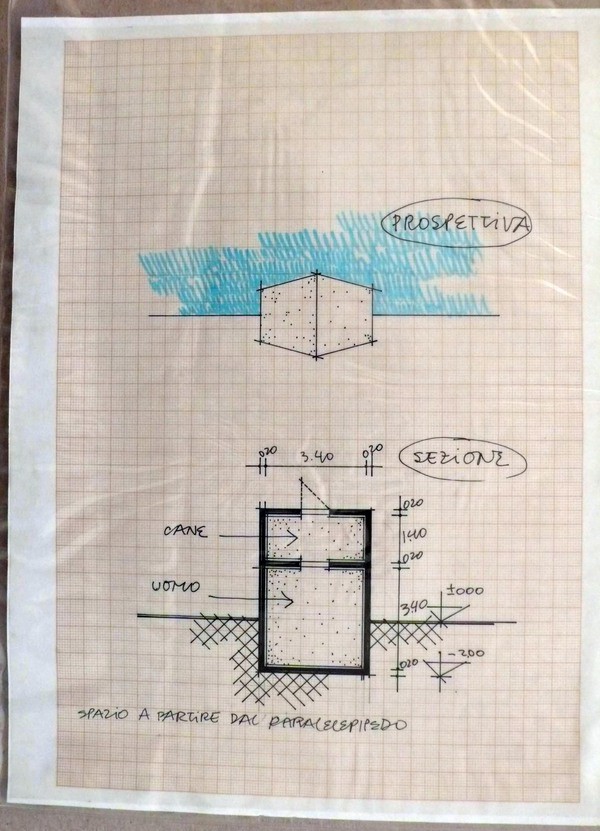 PROSPETTIVA
SEZIONE
020 3.40 020
020
CANE
140
020
UOMO
3.40
±000
020
-200
SPAZIO A PARTIRE DAL PARALELEPIPEDO